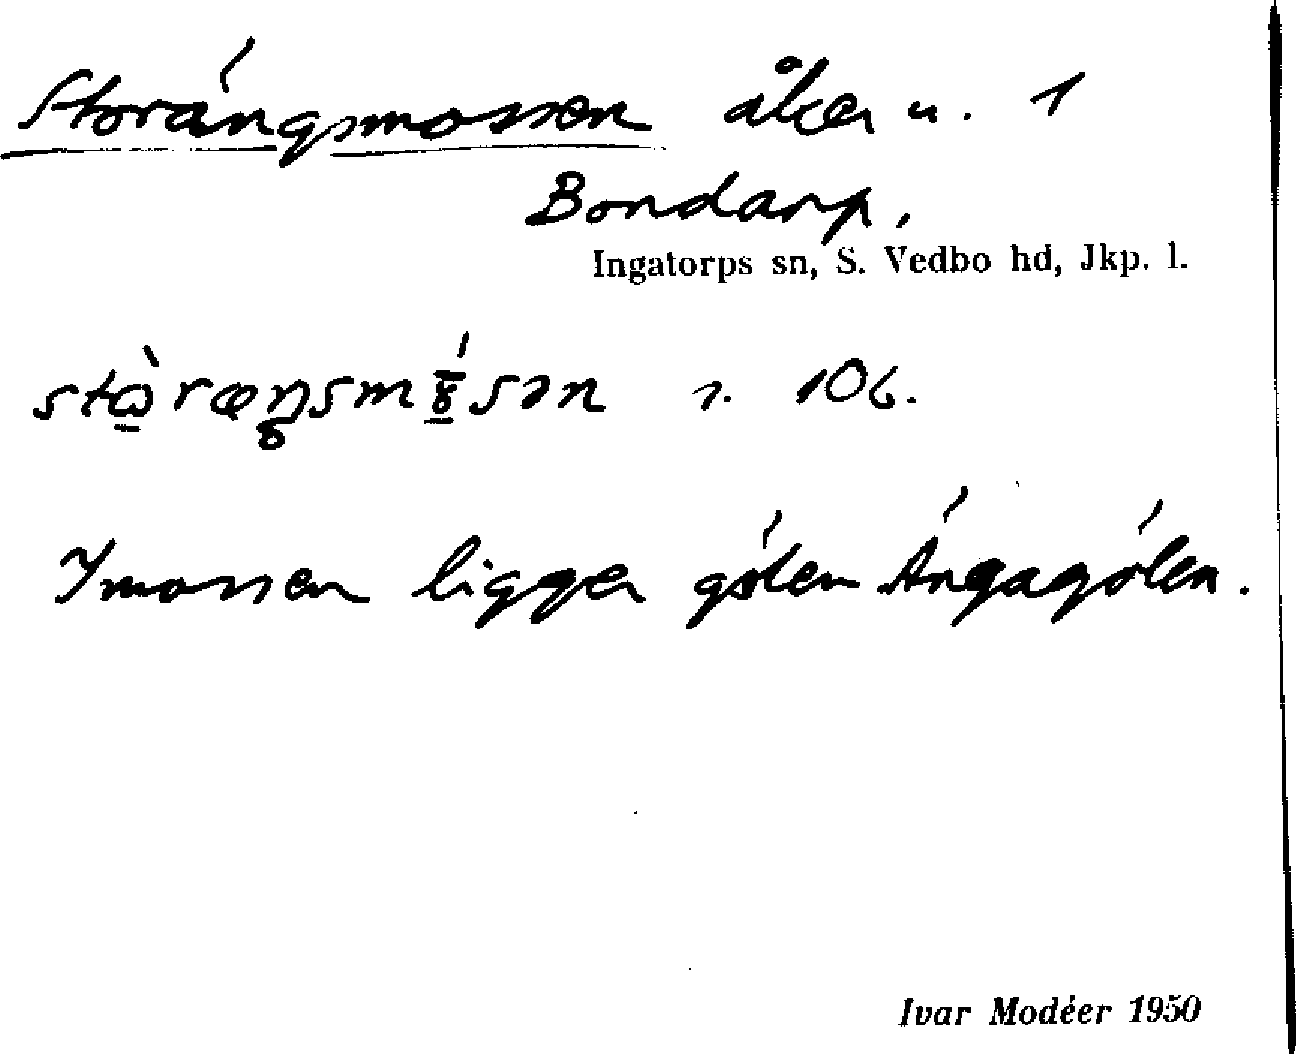 Storängsmossen åker u. 1
Bondarp,
Ingatorps sn, S. Vedbo hd, Jkp. l.
s. 106.
I mossen ligger gölen Ängagölen.
Ivar Modéer 1950